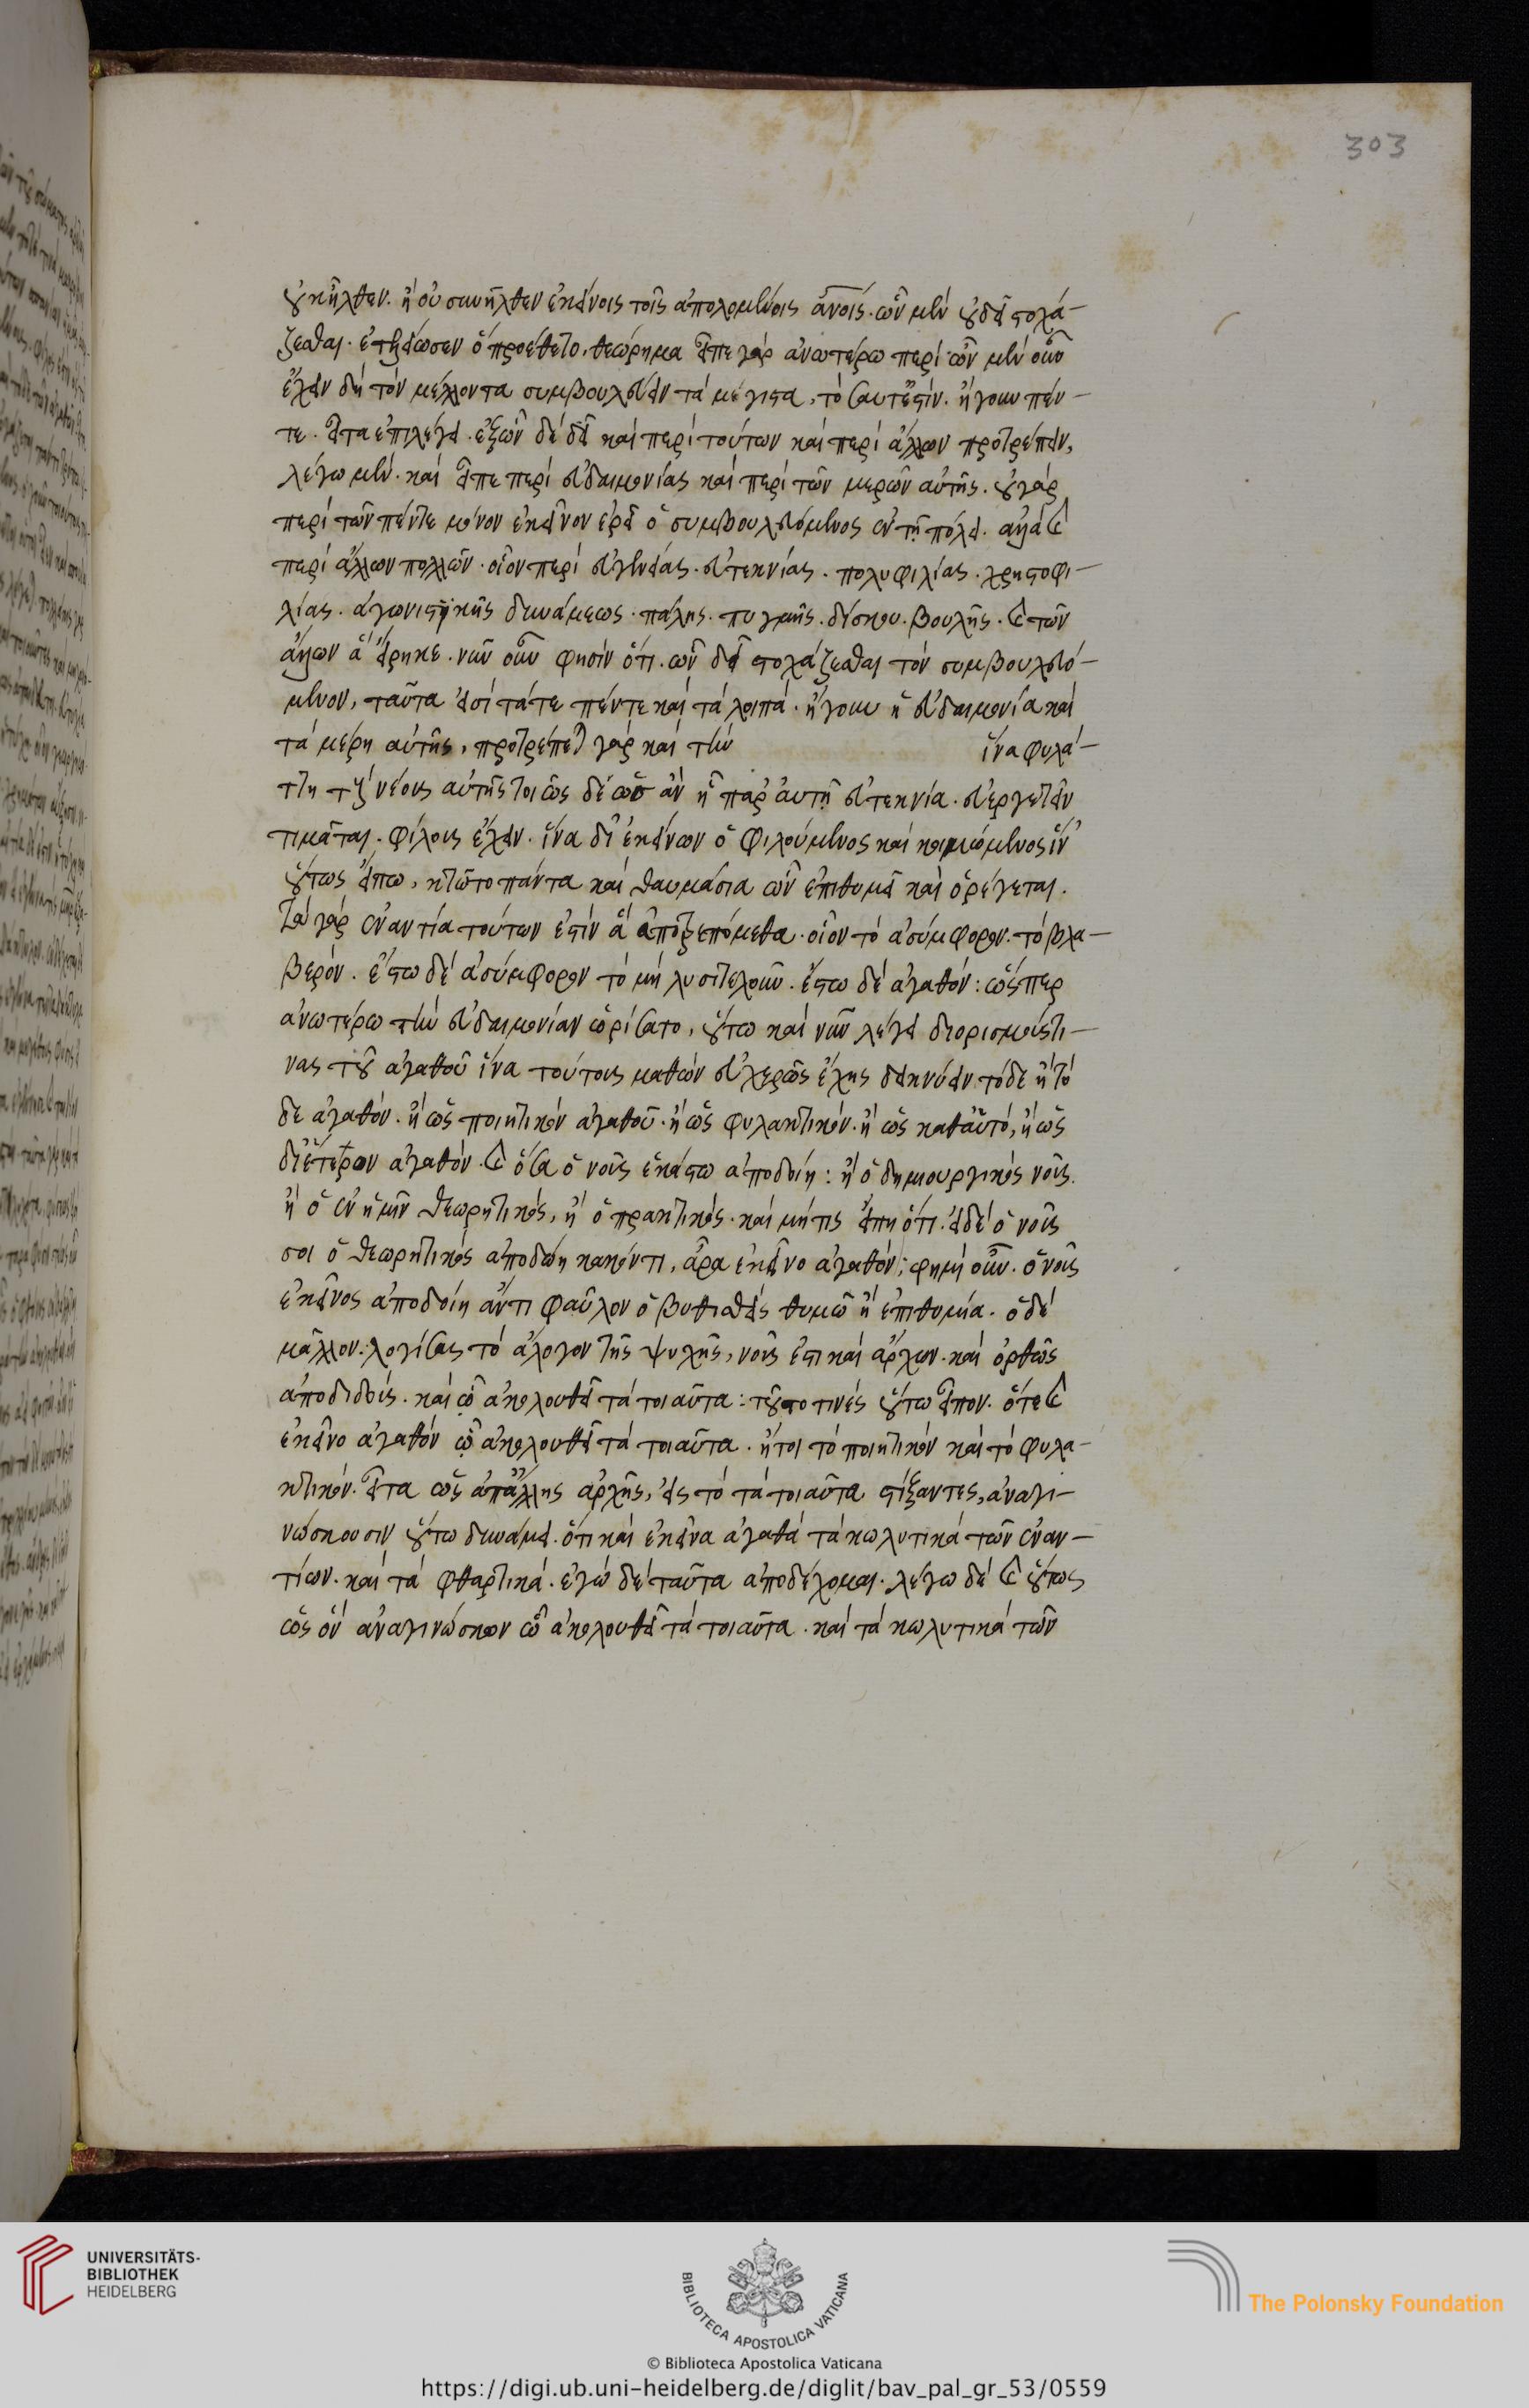 303
οὐκ ἦλθεν. ἢ οὐ συνῆλθεν ἐκείνοις τοῖς ἀπολομένοις ἀνοις. ὧν μὲν οὐ δεῖ στοχά-
ζεσθαι. ἐτελείωσεν ὃ προέθετο, θεώρημα εἶπε γὰρ ἀνωτέρω περὶ ὧν μὲν οὖν
ἔχειν δεῖ τὸν μέλλοντα συμβουλεύειν τὰ μέγιστα, τοσαῦτ' ἐστίν. ἤγουν πέν-
τε. εἶτα ἐπιλέγει. ἐξ ὧν δὲ δεῖ καὶ περὶ τούτων καὶ περὶ ἄλλων προτρέπειν,
λέγωμεν. καὶ εἶπε περὶ εὐδαιμονίας καὶ περὶ τῶν μερῶν αὐτῆς. οὐ γὰρ
περὶ τῶν πέντε μόνον ἐκεῖνον ἐρεῖ ὁ συμβουλευόμενος ἐν τῇ πόλει. ἀλλὰ καὶ
περὶ ἄλλων πολλῶν. οἷον περὶ εὐγενείας. εὐτεκνίας. πολυφιλίας. χρηστοφι-
λίας. ἀγωνιστικῆς δυνάμεως. πάλης. πυγμῆς. δίσκου. βουλῆς. καὶ τῶν
ἄλλων ἃ εἴρηκε. νῦν οὖν φησὶν ὅτι. ὧν δεῖ στοχάζεσθαι τὸν συμβουλευό-
μενον, ταῦτα εἰσὶ τά τε πέντε καὶ τὰ λοιπά. ἤγουν ἡ εὐδαιμονία καὶ
τὰ μέρη αὐτῆς, προτρέπει γὰρ καὶ τὴν ἵνα φυλά-
ττῃ τοὺς νέους αὐτῆς τοιῶς δὲ ὡς ἂν ᾖ παρ' αὐτῇ εὐτεκνία. εὐεργετεῖν
τιμᾶται. φίλους ἔχειν. ἵνα δι' ἐκείνων ὁ φιλούμενος καὶ
οὕτως εἴπω, κτῷτο πάντα καὶ θαυμάσια ὧν ἐπιθυμεῖ καὶ ὀρέγεται.
τὰ γὰρ ἐναντία τούτων ἐστὶν ἃ ἀποτρεπόμεθα. οἷον τὸ ἀσύμφορον. τὸ βλα-
βερόν. ἔστω δὲ ἀσύμφορον τὸ μὴ λυσιτελοῦν. ἔστω δὲ ἀγαθόν: ὥσπερ
ἀνωτέρω τὴν εὐδαιμονίαν ὡρίσατο, οὕτω καὶ νῦν λέγει διορισμούς τι-
νας τοῦ ἀγαθοῦ ἵνα τούτους μαθὼν εὐχερῶς ἔχῃς δεικνύειν τόδε ἢ τό
δε ἀγαθόν. ἢ ὡς ποιητικὸν ἀγαθοῦ. ἢ ὡς φυλακτικόν. ἢ ὡς καθ' αὑτό, ἢ ὡς
δι' ἕτερον ἀγαθόν. καὶ ὅσα ὁ νοῦς ἑκάστω ἀποδοίη: ἢ ὁ δημιουργικὸς νοῦς.
ἢ ὁ ἐν ἡμῖν θεωρητικός, ἢ ὁ πρακτικός. καὶ μή τις εἴπῃ ὅτι. εἰ δὲ ὁ νοῦς
σοι ὁ θεωρητικὸς ἀποδώῃ κακόν τι, ἆρα ἐκεῖνο ἀγαθόν; φημὶ οὖν. ὁ νοῦς
ἐκεῖνος ἀποδοίη ἄν τι φαῦλον ὁ βυθισθεὶς θυμῷ ἢ ἐπιθυμία. ὁ δὲ
μᾶλλον. λογίσας τὸ ἄλογον τῆς ψυχῆς, νοῦς ἐστι καὶ ἄρχων. καὶ ὀρθῶς
ἀποδιδούς. καὶ ᾧ ἀκολουθεῖ τὰ τοιαῦτα: τοῦτο τινὲς οὕτω εἶπον. ὅτε καὶ
ἐκεῖνο ἀγαθὸν ᾧ ἀκολουθεῖ τὰ τοιαῦτα. ἤτοι τὸ ποιητικὸν καὶ τὸ φυλα-
κτικόν. εἶτα ὡς ἀπ' ἄλλης ἀρχῆς, εἰς τὸ τὰ τοιαῦτα στίξαντες, ἀναγι-
νώσκουσιν οὕτω δυνάμει. ὅτι καὶ ἐκεῖνα ἀγαθὰ τὰ κωλυτικὰ τῶν ἐναν-
τίων. καὶ τὰ φθαρτικά. ἐγὼ δὲ ταῦτα ἀποδέχομαι. λέγω δὲ καὶ οὕτως
ὡς ὃν ἀναγινώσκων ᾧ ἀκολουθεῖ τὰ τοιαῦτα. καὶ τὰ κωλυτικὰ τῶν
UNIVERSITÄTS-
BIBLIOTHEK
HEIDELBERG
BIBLIOTECA APOSTOLICA VATICANA
The Polonsky Foundation
© Biblioteca Apostolica Vaticana
https://digi.ub.uni-heidelberg.de/diglit/bav_pal_gr_53/0559